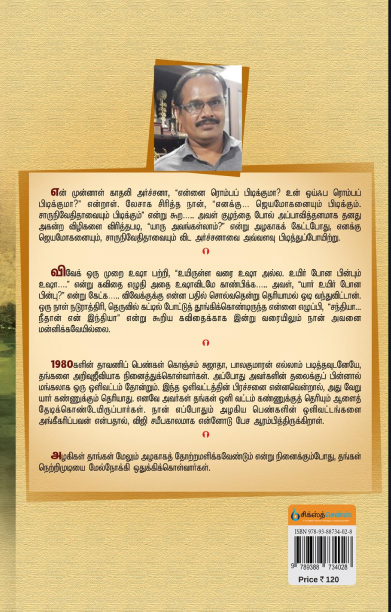 என் முன்னாள் காதலி அர்ச்சனா, "என்னை ரொம்பப் பிடிக்குமா? உன் ஒய்ஃப ரொம்பப்
பிடிக்குமா?" என்றாள். லேசாக சிரித்த நான், "எனக்கு... ஜெயமோகனையும் பிடிக்கும்.
சாருநிவேதிதாவையும் பிடிக்கும்" என்று கூற..... அவள் குழந்தை போல் அப்பாவித்தனமாக தனது
அகன்ற விழிகளை விரித்தபடி, "யாரு அவங்கள்லாம்?" என்று அழகாகக் கேட்டபோது, எனக்கு
ஜெயமோகனையும், சாருநிவேதிதாவையும் விட அர்ச்சனாவை அவ்வளவு பிடித்துப்போயிற்று.
விவேக் ஒரு முறை உஷா பற்றி, "உயிருள்ள வரை உஷா அல்ல. உயிர் போன பின்பும்
உஷா....." என்று கவிதை எழுதி அதை உஷாவிடமே காண்பிக்க..... அவள், "யார் உயிர் போன
பின்பு?" என்று கேட்க..... விவேக்குக்கு என்ன பதில் சொல்வதென்று தெரியாமல் ஓடி வந்துவிட்டான்.
ஒரு நாள் நடுராத்திரி, தெருவில் கட்டில் போட்டுத் தூங்கிக்கொண்டிருந்த என்னை எழுப்பி, "சந்தியா...
நீதான் என் இந்தியா" என்று கூறிய கவிதைக்காக இன்று வரையிலும் நான் அவனை
மன்னிக்கவேயில்லை.
1980களின் தாவணிப் பெண்கள் கொஞ்சம் சுஜாதா, பாலகுமாரன் எல்லாம் படித்தவுடனேயே,
தங்களை அறிவுஜீவியாக நினைத்துக்கொள்வார்கள். அப்போது அவர்களின் தலைக்குப் பின்னால்
மங்கலாக ஒரு ஒளிவட்டம் தோன்றும். இந்த ஒளிவட்டத்தின் பிரச்சனை என்னவென்றால், அது வேறு
யார் கண்ணுக்கும் தெரியாது. எனவே அவர்கள் தங்கள் ஒளி வட்டம் கண்ணுக்குத் தெரியும் ஆளைத்
தேடிக்கொண்டேயிருப்பார்கள். நான் எப்போதும் அழகிய பெண்களின் ஒளிவட்டங்களை
அங்கீகரிப்பவன் என்பதால், விஜி சமீபகாலமாக என்னோடு பேச ஆரம்பித்திருக்கிறாள்.
அழகிகள் தாங்கள் மேலும் அழகாகத் தோற்றமளிக்கவேண்டும் என்று நினைக்கும்போது, தங்கள்
நெற்றிமுடியை மேல்நோக்கி ஒதுக்கிக்கொள்வார்கள்.
சிக்ஸ்த்சென்ஸ்
ISBN 978-93-88734-02-8
9 789388 734028
Price ₹ 120